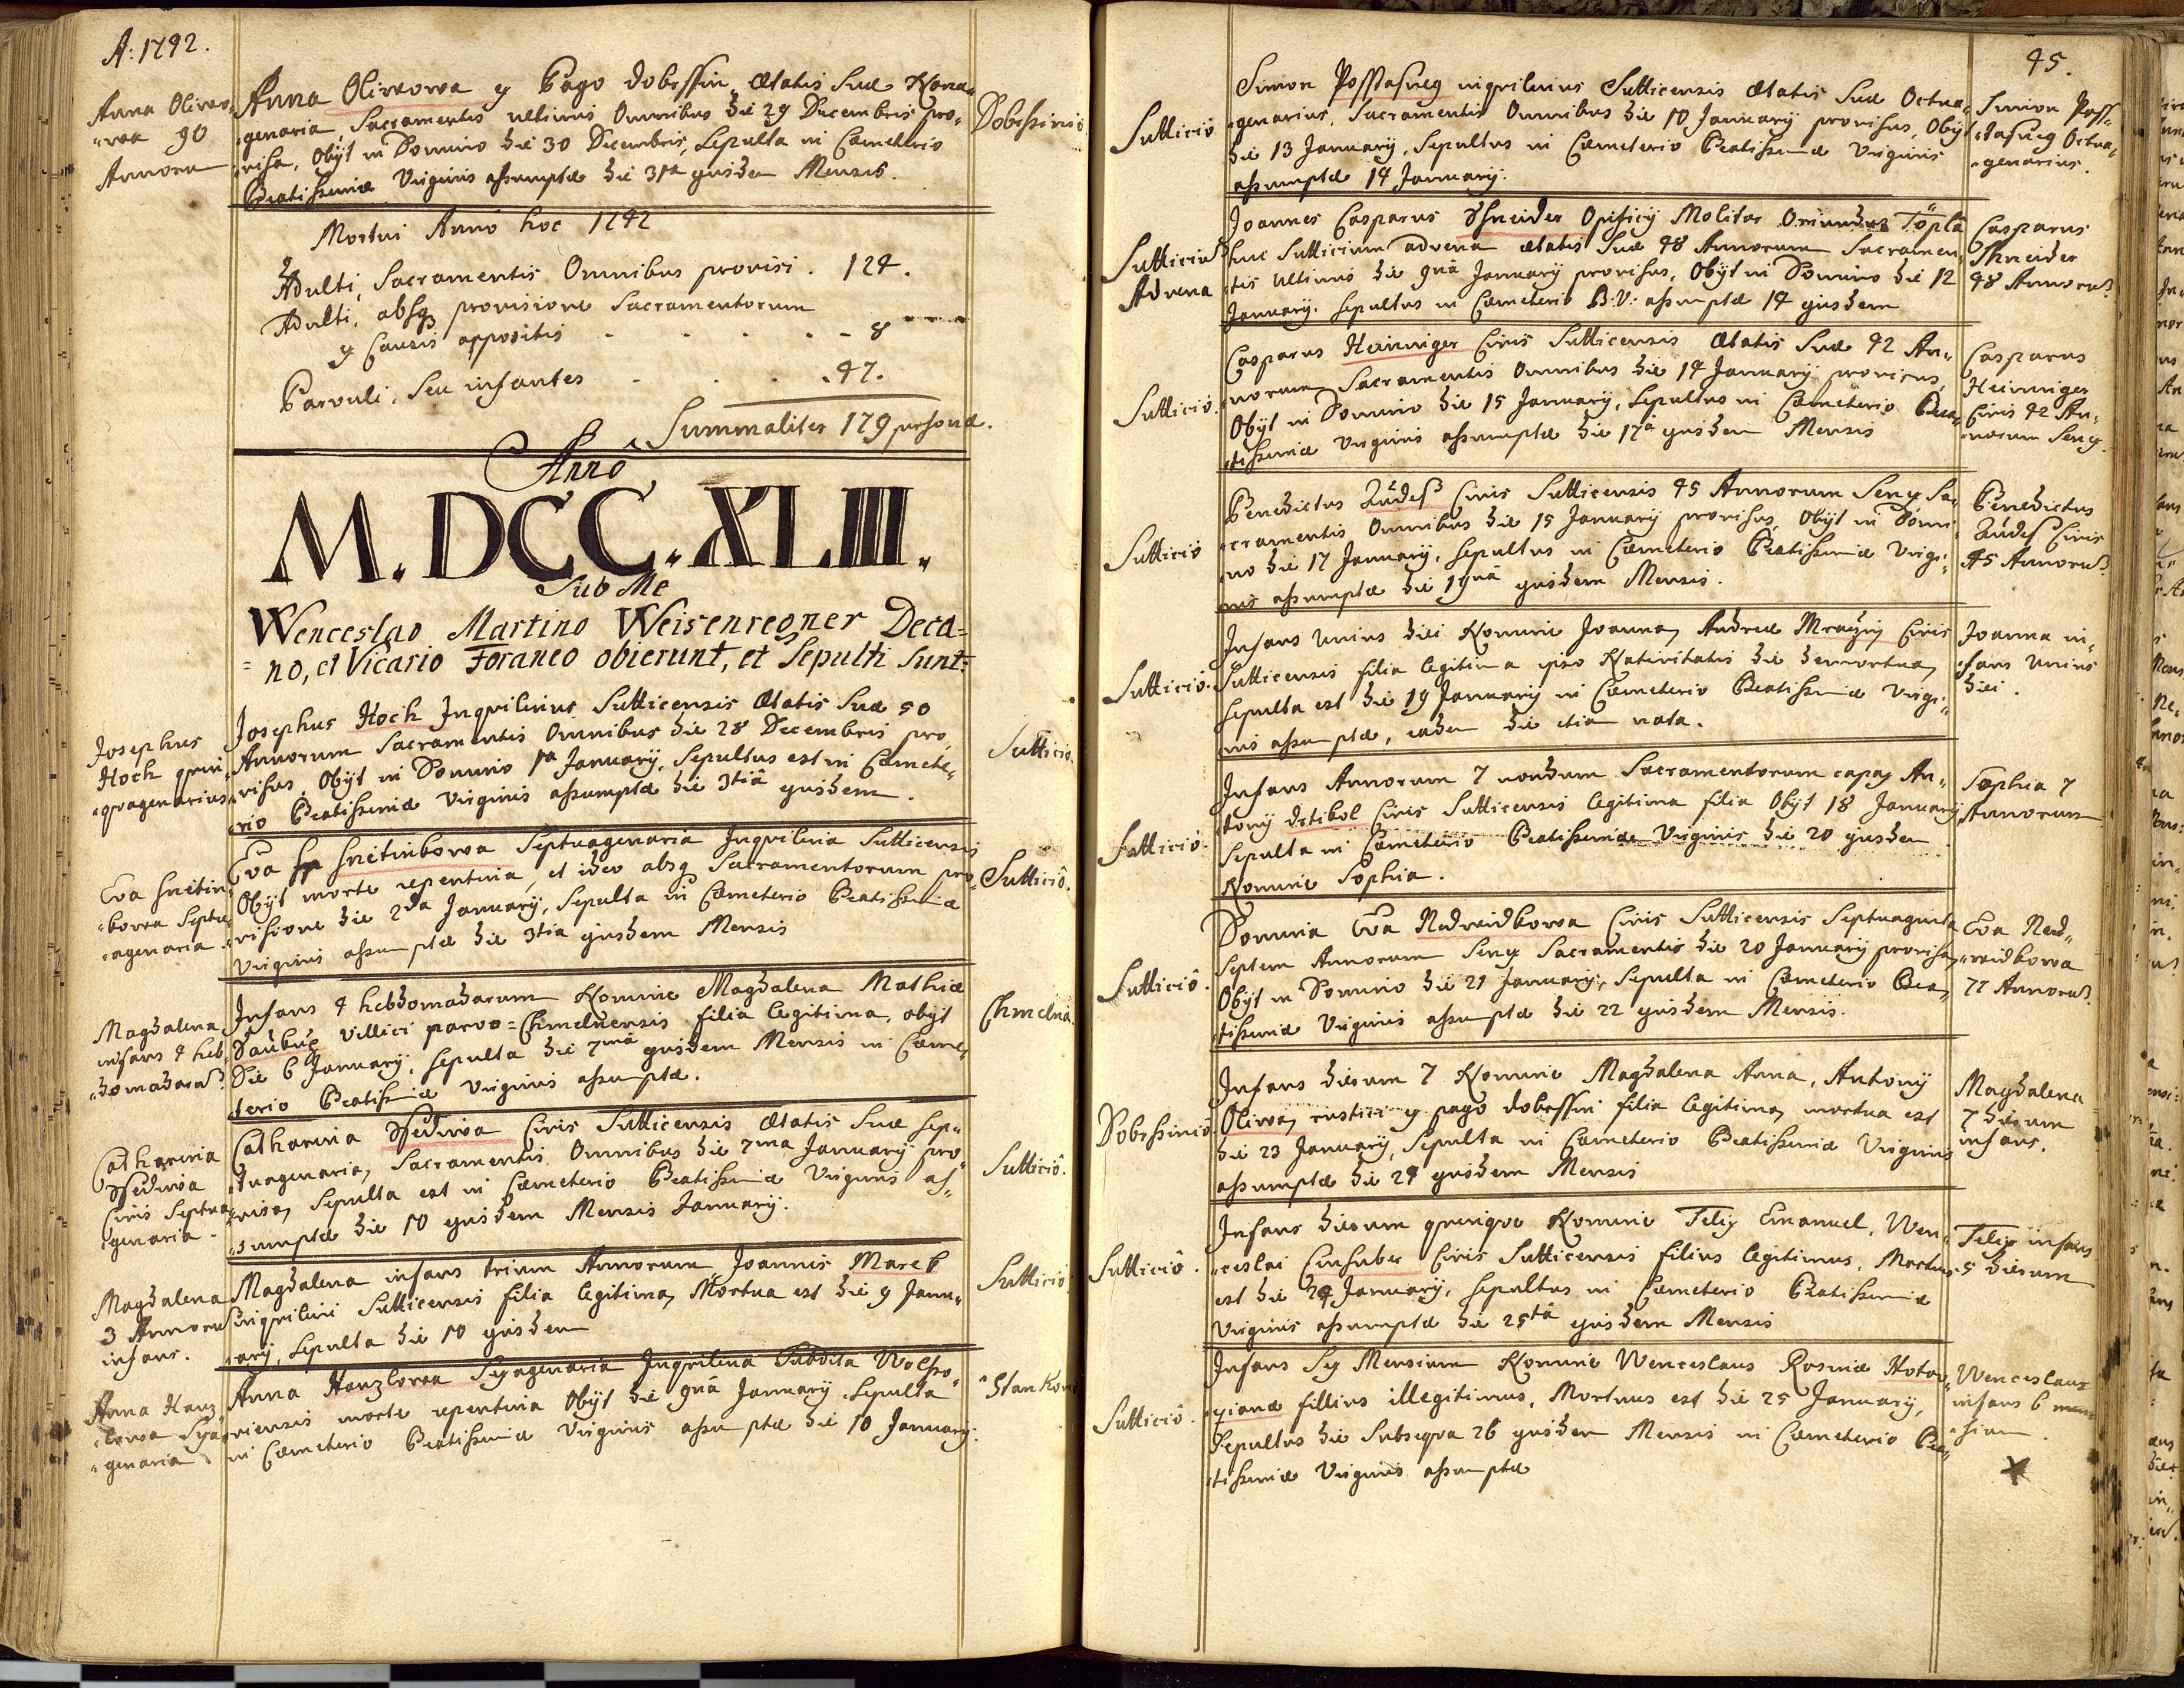 A: 1742.
Anna Oliwo-
-wa 90
Annorum
Anna Oliwowa ex Pago Dobrssin, Ætatis Suæ Nona-
-genaria, Sacramentis ultimis Omnibus die 29 Decembris pro-
-visa, Obijt in Domino die 30 Decembris, Sepulta in Cæmeterio
Beatissimæ Virginis assumptæ die 31a ejusdem Mensis.
Dobrssinió
Mortui Anno hoc 1742
Adulti, Sacramentis Omnibus provisi. 124.
Adulti, absq provisione Sacramentorum
ex Causis appositis - - - - 8
Parvuli, Seu infantes - - - 47.
Summaliter 179 personæ.
Anno
M.DCC.XLIII.
Sub Me
Wenceslao Martino Weisenregner Deca=
=no, et Vicario Foraneo obierunt, et Sepulti Sunt:
Josephus
Hock quin-
-quagenarius
Josephus Hock Inquilinus Sutticensis Ætatis Suæ 50
Annorum Sacramentis Omnibus die 28 Decembris pro
-visus, Obijt in Domino 1a January, Sepultus est in Cæmete-
-rio Beatissimæ Virginis assumptæ die 3tia ejusdem.
Suttició.
Eva Snětin-
-bowa Septu-
-agenaria.
Eva Snětinbowa Septuagenaria Inquilina Sutticensis
Obijt morte repentina, et ideo absq Sacramentorum pro-
-visione die 2da January, Sepulta in Cæmeterio Beatissimæ
Virginis assumptæ die 3tia ejusdem Mensis
Suttició.
Magdalena
infans 4 heb-
-domadarum
Infans 4 hebdomadarum Nomine Magdalena Mathiæ
Daubuě Villici parvo=Chmelnensis filia legitima, obijt
Die 6 January, Sepulta die 7ma ejusdem Mensis in Cæme-
terio Beatissimæ Virginis assumptæ.
Chmelna.
Catharina
Civis Septua
-genaria.
Catharina Civis Sutticensis Ætatis Suæ Sep-
-tuagenaria, Sacramentis Omnibus die 7ma January pro-
-visa, Sepulta est in Cæmeterio Beatissimæ Virginis as-
-sumptæ die 10 ejusdem Mensis January.
Suttició.
Magdalena
3 Annoru
infans.
Magdalena infans trium Annorum Joannis Mareß
Inquilini Sutticensis filia legitima, Mortua est die 9 Janu-
-ary, Sepulta die 10 ejusdem
Suttició
Anna Hanz-
-lowa Sexa-
-genaria
Anna Hanzlowa Sexagenaria Inquilina Subdita Wolsso-
-viensis morte repentina Obijt die 9na January. Sepulta
in Cæmeterio Beatissimæ Virginis assumptæ die 10 January.
Stankow
45.
Suttició
Simon Possasneg inquilinus Sutticensis Ætatis Suæ Octua-
-genarius, Sacramentis Omnibus die 10 January provisus, Obijt
die 13 January, Sepultus in Cæmeterio Beatissimæ Virginis
assumptæ 14 January.
Simon Poss-
-tasneg Octua-
-genarius.
Suttició
Advena
Joannes Casparus Shneider Opificij Molitor Oriundus Töpla
huc Sutticium advena Ætatis Suæ 48 Annorum Sacramen-
-tis ultimis die 9na January provisus, Obijt in Domino die 12
January. Sepultus in Cæmeterio B:V: assumptæ 14 ejusdem
Casparus
Shneider
48 Annoru
Suttició.
Casparus Heininger Civis Sutticensis Ætatis Suæ 42 An-
-norum Sacramentis Omnibus die 14 January provisus,
Obijt in Domino die 15 January, Sepultus in Cæmeterio Bea-
-tissimæ Virginis assumptæ die 17a ejusdem Mensis
Casparus
Heininger
Civis 42 An-
-norum Senex.
Suttició
Benedictus Zúdeß Civis Sutticensis 45 Annorum Senex Sa-
-cramentis Omnibus die 15 January provisus, Obijt in Domi-
-no die 17 January, Sepultus in Cæmeterio Beatissimæ Virgi-
-nis assumptæ die 19na ejusdem Mensis.
Benedictus
Zúdeß Civis
45 Annoru
Suttició.
Infans Unius diei Nomine Joanna, Andreæ Mrazij Civis
Sutticensis filia legitima ipso Nativitatis die demortua,
Sepulta est die 19 January in Cæmeterio Beatissimæ Virgi-
-nis assumptæ, eadem die etiam nata.
Joanna in-
-fans Unius
diei.
Suttició.
Infans Annorum 7 nondum Sacramentorum capax An-
-tonij Detibol Civis Sutticensis legitima filia Obijt 18 January
Sepulta in Cæmeterio Beatissimæ Virginis die 20 ejusdem
Nomine Sophia.
Sophia 7
Annorum
Suttició.
Domina Eva Nedwidkowa Civis Sutticensis Septuaginta
Septem Annorum Senex Sacramentis die 20 January provisa,
Obijt in Domino die 21 January, Sepulta in Cæmeterio Bea-
-tissimæ Virginis assumptæ die 22 ejusdem Mensis.
Eva Ned-
-widkowa
77 Annoru
Dobrssinió.
Infans dierum 7 Nomine Magdalena Anna, Antonij
Oliwa, rustici ex pago Dobrssin filia legitima, mortua est
die 23 January, Sepulta in Cæmeterio Beatissimæ Virginis
assumptæ die 24 ejusdem Mensis
Magdalena
7 dierum
infans.
Suttició.
Infans dierum quinque Nomine Felix Emanuel, Wen-
-ceslai Civis Sutticensis filius legitimus, Mortuus
est die 24 January, Sepultus in Cæmeterio Beatissimæ
Virginis assumptæ die 25ta ejusdem Mensis
Felix infans
5 dierum
Suttició.
Infans Sex Mensium Nomine Wenceslaus Rosinæ Hotov-
-zianæ fillius illegitimus, Mortuus est die 25 January,
Sepultus die Subsequa 26 ejusdem Mensis in Cæmeterio Bea-
-tissimæ Virginis assumptæ
Wenceslaus
infans 6 men
-sium.